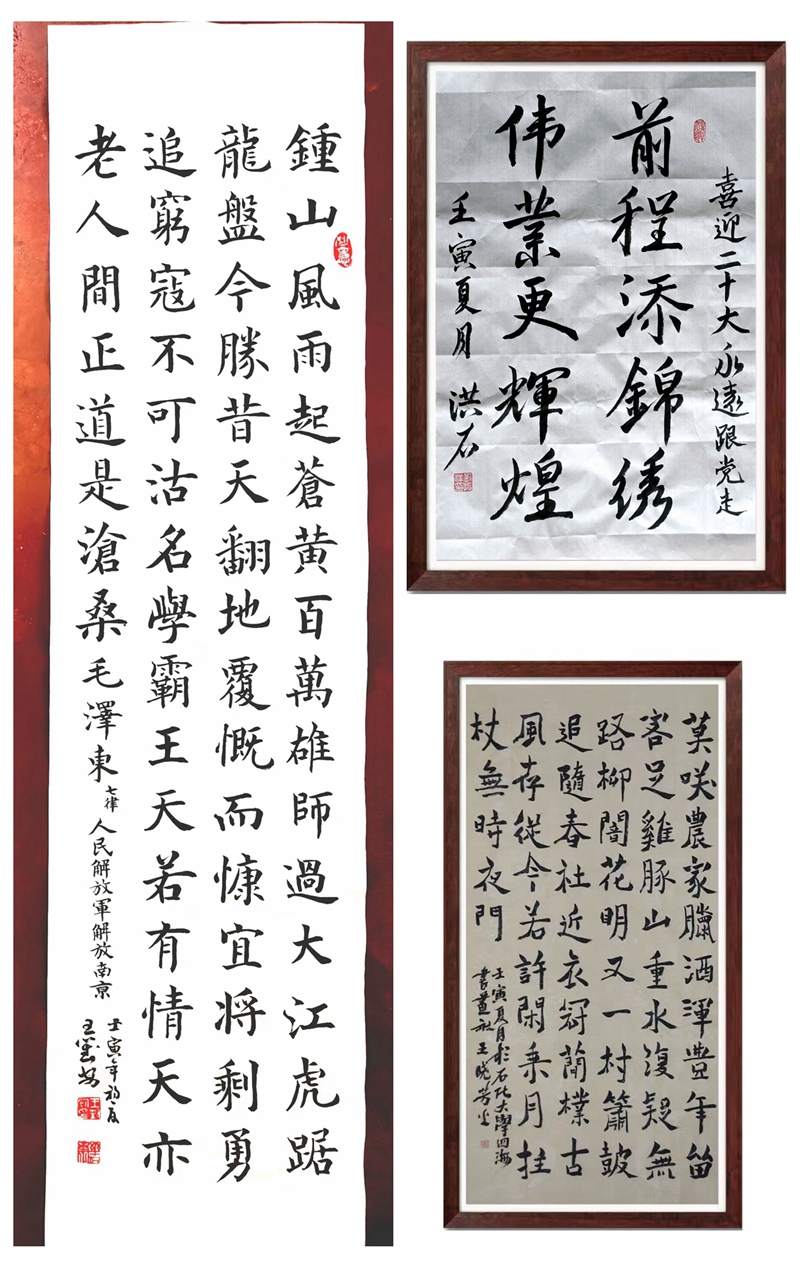 鍾山風雨起蒼黄百萬雄師過大江虎踞
龍盤今勝昔天翻地覆慨而慷宜將剩勇
追窮寇不可沽名學霸王天若有情天亦
老人間正道是滄桑毛澤東七律人民解放軍解放南京
壬寅年初夏
喜迎二十大永遠跟党走
前程添錦绣
伟業更輝煌
壬寅夏月 洪石
莫咲農家臘酒渾豊年留
客足雞豚山重水復疑無
路柳闇花明又一村簫鼓
追隨春社近衣冠簡樸古
風存從今若許閑乘月拄
杖無時夜門
壬寅夏月於石化大學四海
書畫社王晓芳书